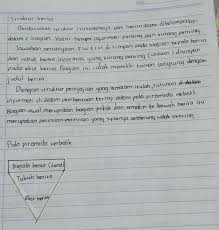 Struktur berita
Berdasarkan struktur (susunannya), yaitu berita dapat dikelompokkan
dalam 2 bagian. Yakni berupa informasi penting dan kurang penting.
Jawaban pertanyaan disimpan pada bagian kepala berita
dan tubuh berita. Informasi yang kurang penting (uraian) disimpan
pada ekor berita. Bagian ini tidak memiliki kaitan langsung dengan
judul berita.
Dengan struktur penyajian yang demikian itulah, susunan
informasi di dalam pemberitaan kerap dalam pola piramida terbalik.
Bagian awal merupakan bagian pokok dan semakin ke bawah berita itu
merupakan perincian-perincian yang sifatnya cenderung tidak penting.
Pola piramida terbalik
Kepala berita (Lead)
Tubuh berita
Ekor berita